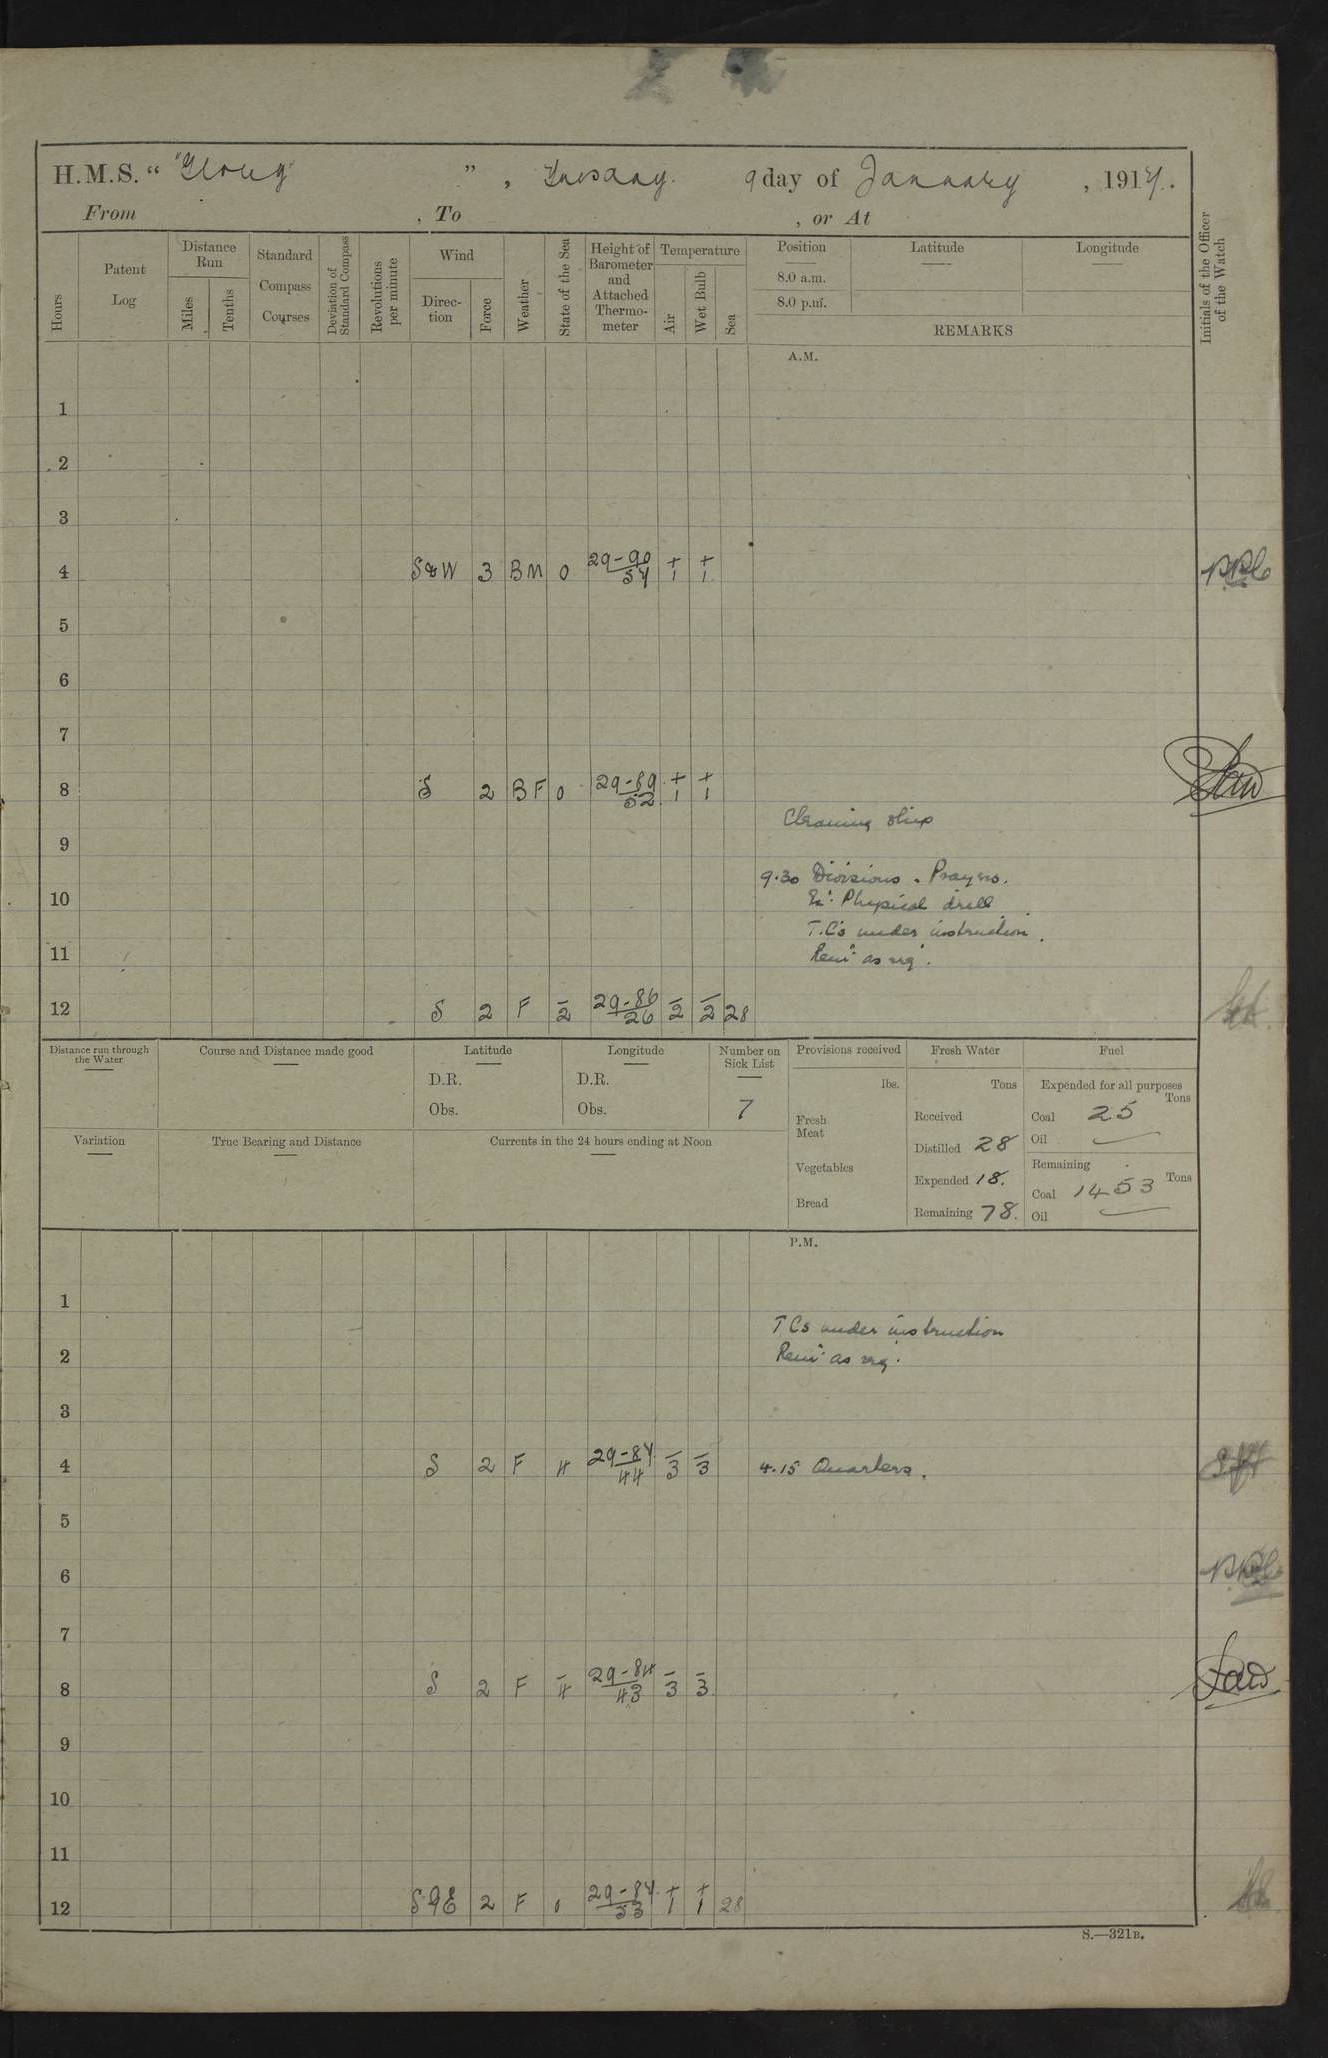 H.M.S. “ "Glory" ” , Tuesday. 9 day of January , 1917.
From , To , or At
Hours
Patent Log
Distance Run
Miles
Tenths
Standard Compass Courses
Deviation of Standard Compass
Revolutions per minute
Wind
Direc-tion
Force
Weather
State of the Sea
Height of Barometer and Attached Thermo-meter
Temperature
Air
Wet Bulb
Sea
Position
8.0 a.m.
8.0 p.m.
Latitude
Longitude
REMARKS
Initials of the Officer of the Watch
A.M.
1
2
3
4 3 BM 0 29-90 54 +1 +1
5
6
7
8 S 2 BF 0 29-89 52 +1 +1
Cleaning ship
9
9.30 Divisions. Prayers.
10
Ex: Physical drill
T.C's under instruction.
11 Rem: as req.
12 S 2 F -2 29-86 26 -2 -2 28
Distance run through the Water
Course and Distance made good
Latitude
D.R.
Obs.
Longitude
D.R.
Obs.
Number on Sick List
7
Provisions received
lbs.
Fresh Meat
Vegetables
Bread
Fresh Water
Tons
Received
Distilled 28
Expended 18.
Remaining 78.
Fuel
Expended for all purposes
Tons
Coal 25
Oil
Remaining
Coal 1453 Tons
Oil
Variation
True Bearing and Distance
Currents in the 24 hours ending at Noon
P.M.
1
T Cs under instruction
2 Rem: as req.
3
4 S 2 F 4 29-84 44 -3 -3 4.15 Quarters.
5
6
7
8 S 2 F -4 29-84 43 -3 -3
9
10
11
12 2 F 0 29-84 53 +1 +1 28
S.—321B.